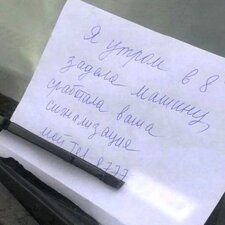 Я утром в 8
задела машину,
сработала ваша
сигнализация
мой тел 8777